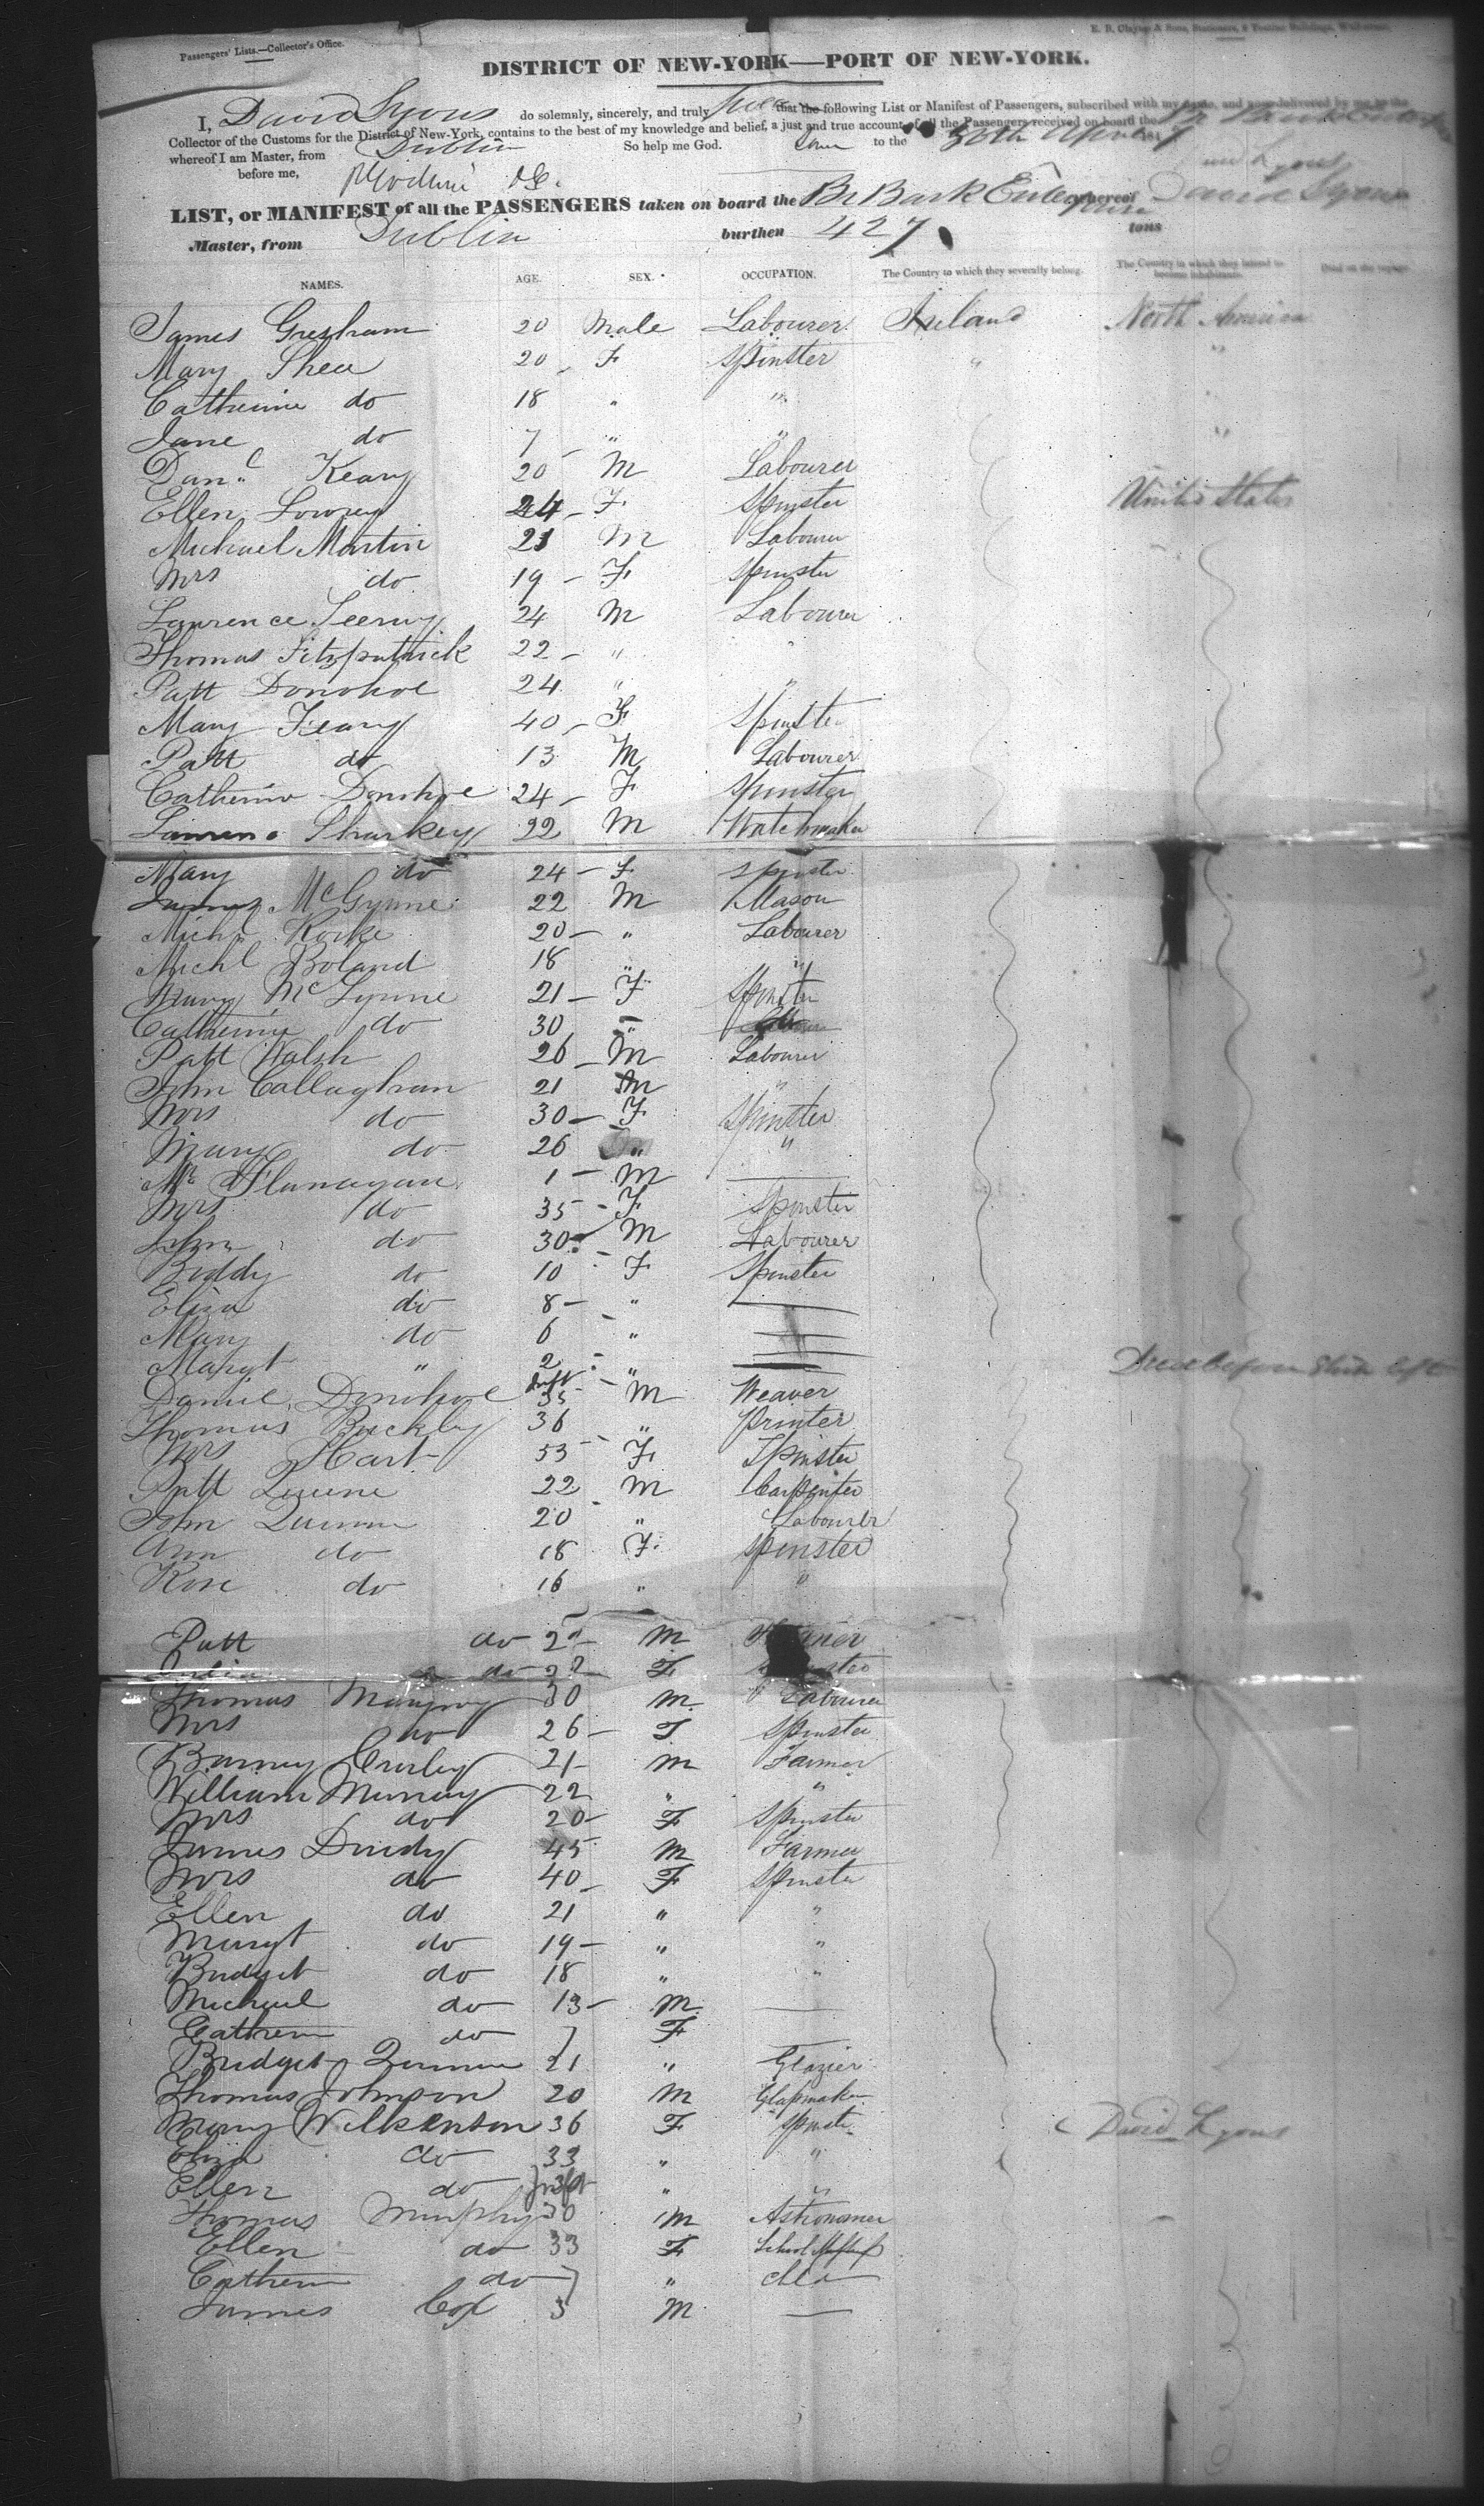 Passengers' Lists.—Collector's Office.
DISTRICT OF NEW-YORK—PORT OF NEW-YORK.
I, David Lyons do solemnly, sincerely, and truly that the following List or Manifest of Passengers, subscribed with my name, and now delivered by me to the
Collector of the Customs for the District of New-York, contains to the best of my knowledge and belief, a just and true account of all the Passengers received on board the
whereof I am Master, from Dublin So help me God. to the 30th April
before me,
LIST, or MANIFEST of all the PASSENGERS taken on board the Br Bark Enterprise whereof David Lyons
Master, from Dublin burthen 427 tons
NAMES. AGE. SEX. OCCUPATION. The Country to which they severally belong. The Country in which they intend to become inhabitants. Died on the voyage.
James Gresham 20 Male Labourer Ireland North America
Mary Shea 20 F Spinster " "
Catherine do 18 " " "
Jane do 7 " " "
Danl Keary 20 M Labourer
Ellen Lowrey 24 F Spinster United States
Michael Martin 21 M Labourer
Mrs do 19 F Spinster
Laurence Leerny 24 M Labourer
Thomas Fitzpatrick 22 " "
Patt Donohoe 24 " "
Mary Keary 40 F Spinster
Patt do 13 M Labourer
Catherine Donohoe 24 F Spinster
Sharkey 22 M Watchmaker
Mary do 24 F Spinster
James McGlynne 22 M Mason
Michl Rorke 20 " Labourer
Michl Boland 18 " "
Mary McGlynne 21 F Spinster
Catherine do 30 "
Patt Walsh 26 M Labourer
John Callaghan 21 M "
Mrs do 30 F Spinster
Mary do 26 " "
Mr Flanagan 1 M —
Mrs do 35 F Spinster
John do 30 M Labourer
Biddy do 10 F Spinster
Eliza do 8 " —
Mary do 6 " —
Margt " 2 " — before Ship left
Daniel Donohoe 35 M Weaver
Thomas Buckley 36 " Printer
Mrs Hart 53 F Spinster
Patt Quinne 22 M Carpenter
John Quinn 20 " Labourer
Ann do 18 F Spinster
Rose do 16 " "
Patt do M
Julia do F Spinster
Thomas 30 M Labourer
Mrs do 26 F Spinster
Barney Curley 21 M Farmer
William Murray 22 " "
Mrs do 20 F Spinster
James Dindy 45 M Farmer
Mrs do 40 F Spinster
Ellen do 21 " "
Margt do 19 " "
Bridget do 18 " "
Michael do 13 M —
Cathren do 7 F
Bridget Quinn 21 " Glazier
Thomas Johnson 20 M Glassmaker
Mary Wilkenson 36 F Spinster
Eliza do 33 " " David Lyons
Ellen do Inft " "
Thomas Murphy 30 M Astronomer
Ellen do 33 F School
Cathren do 7 "
James Cox 3 M —